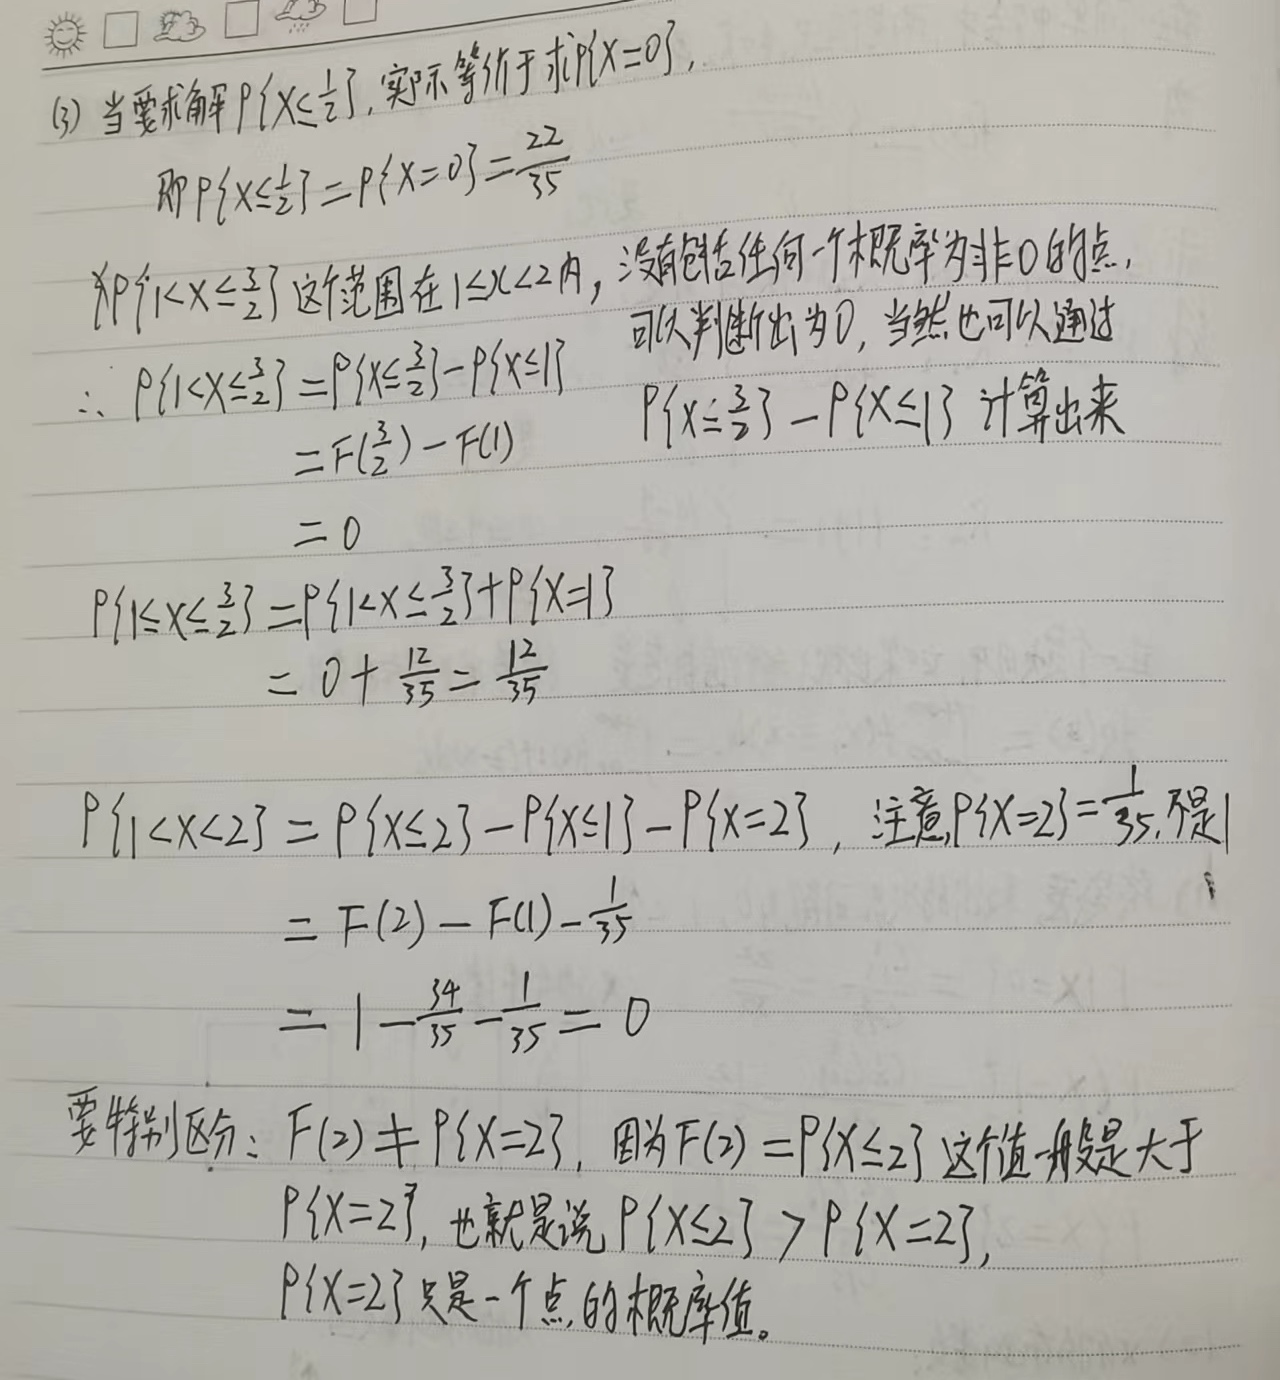 (3) 当要求解P{X≤1/2}, 实际等价于求P{X=0},
即P{X≤1/2}=P{X=0}=22/35
求P{1<X≤3/2}这个范围在1≤x<2内, 没有包括任何一个概率为非0的点,
可以判断出为0, 当然也可以通过
P{X≤3/2}-P{X≤1} 计算出来
∴ P{1<X≤3/2}=P{X≤3/2}-P{X≤1}
=F(3/2)-F(1)
=0
P{1≤X≤3/2}=P{1<X≤3/2}+P{X=1}
=0+12/35=12/35
P{1<X<2}=P{X≤2}-P{X≤1}-P{X=2}, 注意,P{X=2}=1/35,不是1
=F(2)-F(1)-1/35
=1-34/35-1/35=0
要特别区分: F(2)≠P{X=2}, 因为F(2)=P{X≤2}这个值一般是大于
P{X=2}, 也就是说P{X≤2}>P{X=2},
P{X=2}只是一个点的概率值。